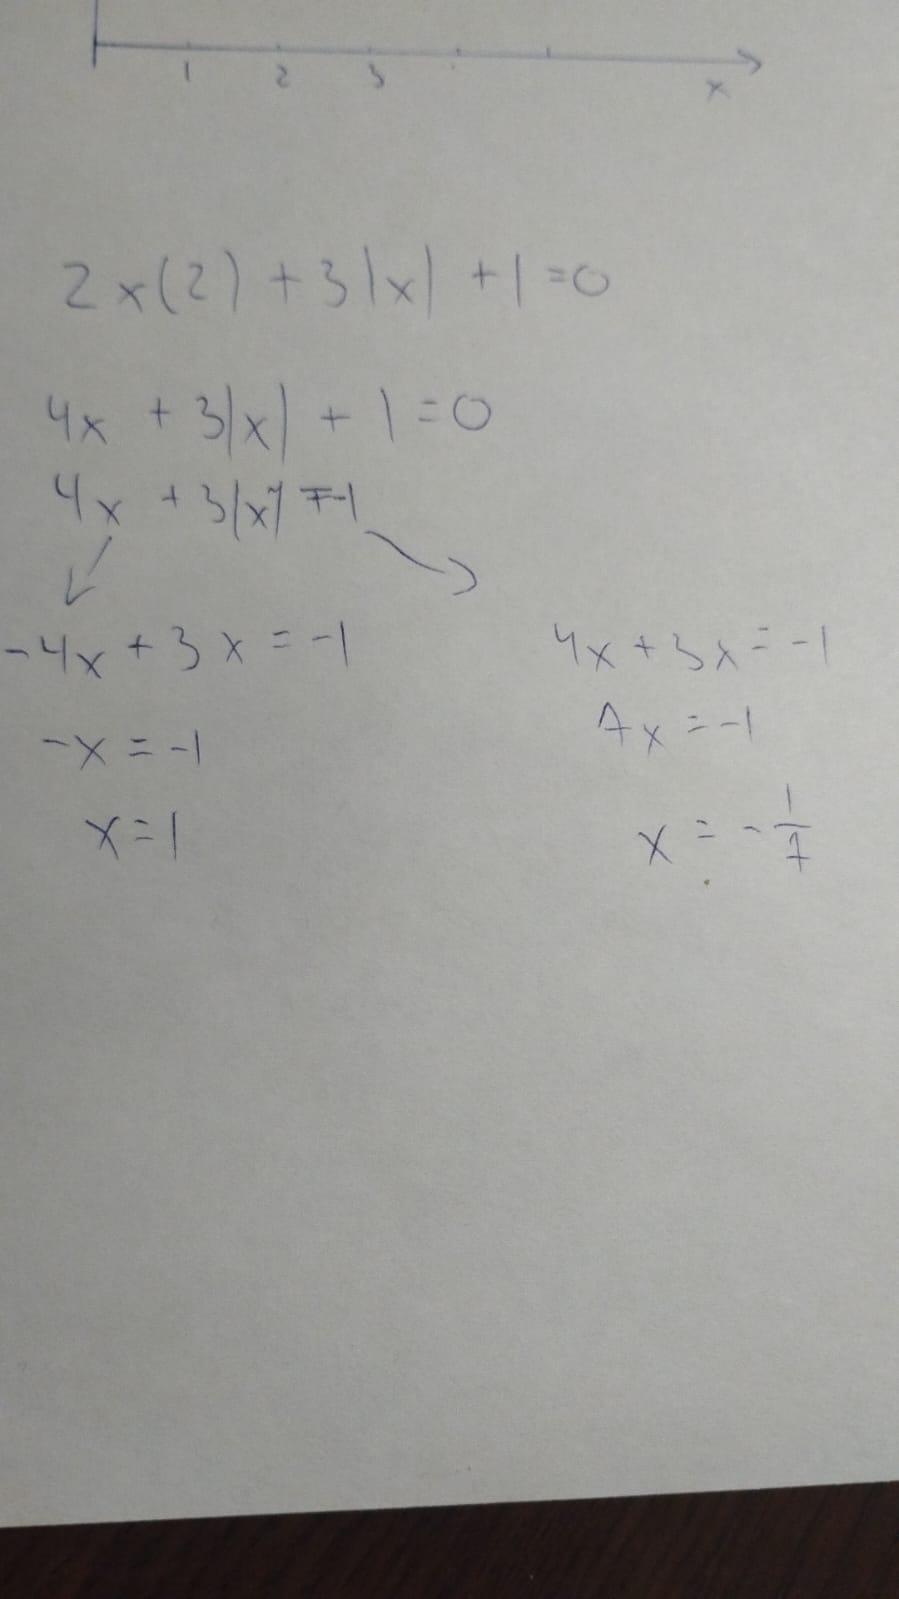 1 2 3
x
2x(2) + 3|x| + 1 = 0
4x + 3|x| + 1 = 0
4x + 3|x| = -1
-4x + 3x = -1
4x + 3x = -1
-x = -1
7x = -1
x = 1
x = -1/7